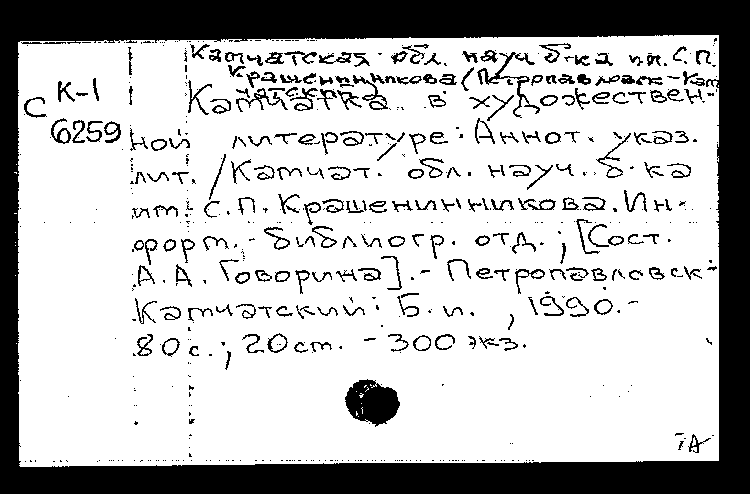 Камчатская обл. науч. б-ка им. С.П.
Крашенинникова (Петропавловск-Кам
чатский)
С К-1
6259
Камчатка в художествен-
ной литературе: Аннот. указ.
лит. / Камчат. обл. науч. б-ка
им. С.П. Крашенинникова. Ин-
форм.-библиогр. отд.; [Сост.
А.А. Говорина].- Петропавловск-
Камчатский: Б.и., 1990.-
80с.; 20см. - 300 экз.